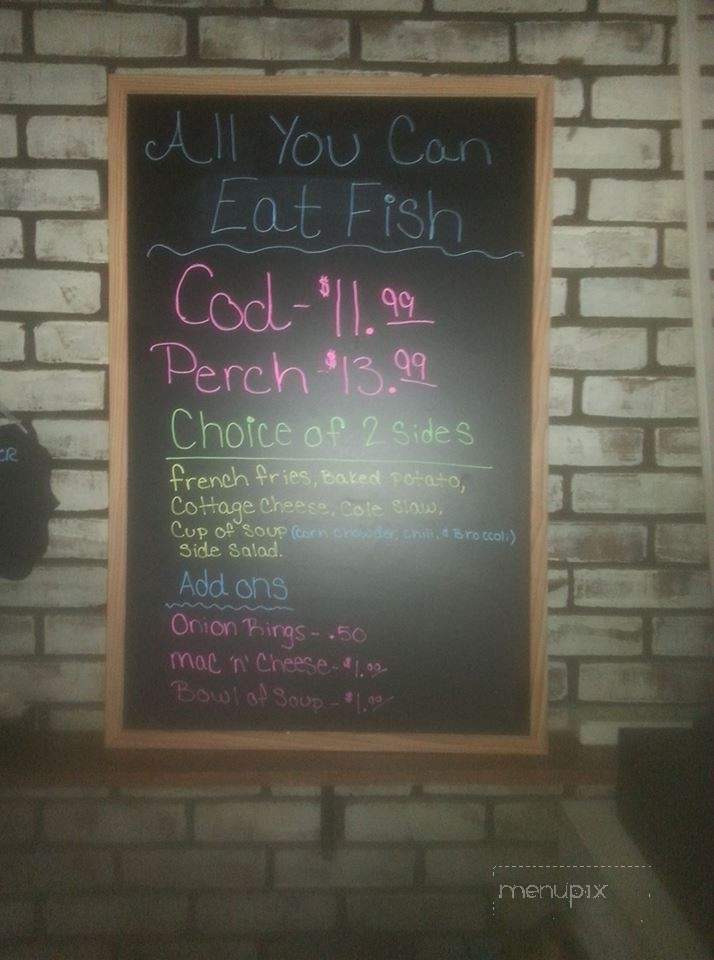 All You Can
Eat Fish
Cod - $11.99
Perch - $13.99
Choice of 2 Sides
french fries, Baked potato,
Cottage Cheese, Cole Slaw,
Cup of Soup (Corn Chowder, Chili, & Broccoli)
Side Salad.
Add ons
Onion Rings - .50
mac 'n' Cheese - $1.99
Bowl of Soup - $1.99
menupix